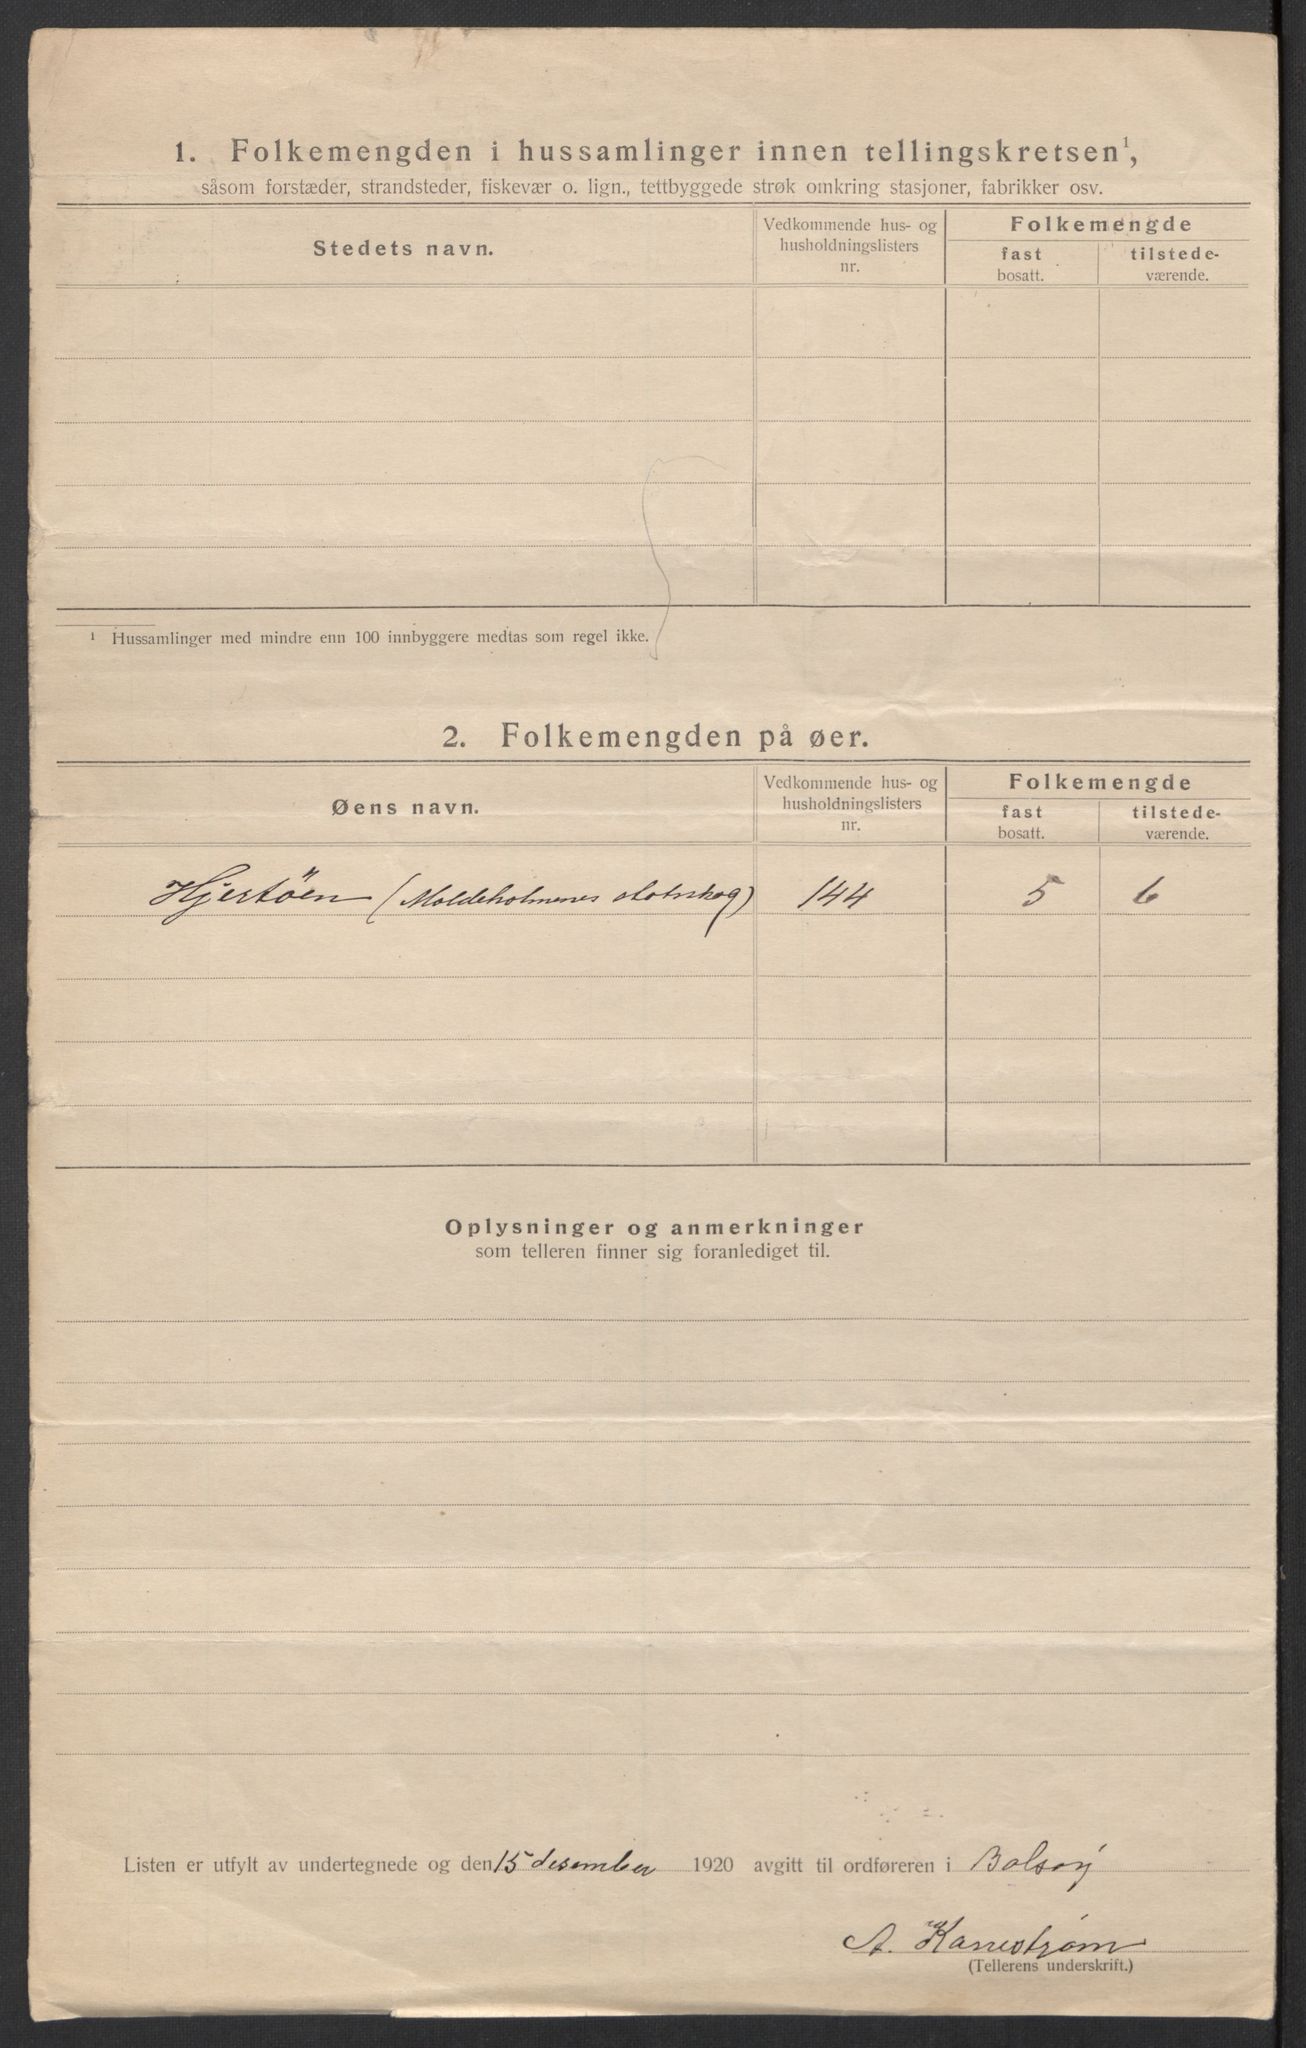 1. Folkemengden i hussamlinger innen tellingskretsen¹,
såsom forstæder, strandsteder, fiskevær o. lign., tettbyggede strøk omkring stasjoner, fabrikker osv.
Stedets navn.
Vedkommende hus- og
husholdningslisters
nr.
Folkemengde
fast
bosatt.
tilstede-
værende.
¹ Hussamlinger med mindre enn 100 innbyggere medtas som regel ikke.
2. Folkemengden på øer.
Øens navn.
Vedkommende hus- og
husholdningslisters
nr.
Folkemengde
fast
bosatt.
tilstede-
værende.
Hjertöen (Moldeholmenes statsskog) 144 5 6
Oplysninger og anmerkninger
som telleren finner sig foranlediget til.
Listen er utfylt av undertegnede og den 15 desember 1920 avgitt til ordføreren i Bolsøy
A. Kanestrøm
(Tellerens underskrift.)